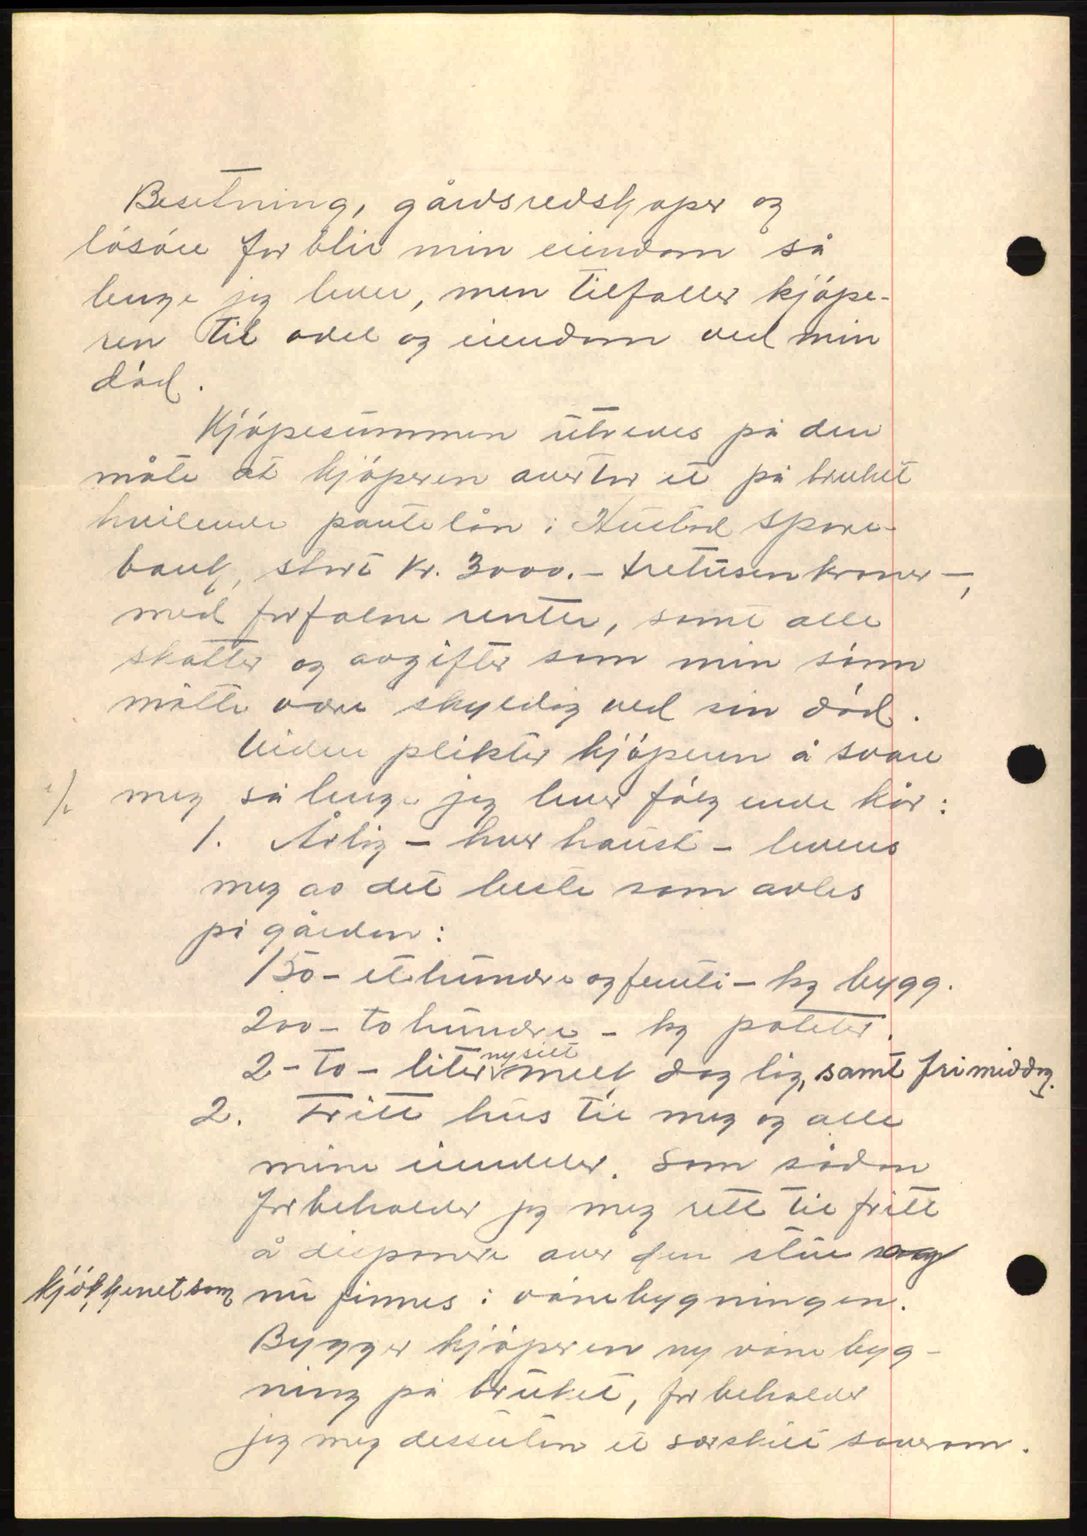 Besetning, gårdsredskaper og
lösöre forblir min eiendom så
lenge jeg lever, men tilfaller kjöpe-
ren til odel og eiendom ved min
död.
Kjöpesummen utredes på den
måte at kjöperen overtar et på bruket
hvilende pantelån i Hustad Spare-
bank, stort kr. 3000.- tretusen kroner -,
med forfalne renter, samt alle
skatter og avgifter som min sönn
måtte være skyldig ved sin död.
Videre plikter kjöperen å svare
meg så lenge jeg lever fölgende kår:
1. Årlig - hver haust - leveres
meg av det beste som avles
på gården:
150 - ethundre og femti - kg bygg.
200 - tohundre - kg poteter.
2 - to - liter nysilt melk daglig, samt fri middag.
2. Fritt hus til meg og alle
mine eiendeler. Som sådan
forbeholder jeg meg rett til fritt
å disponere over den stue og
kjökkenet som nu finnes i vånebygningen.
Bygger kjöperen ny våne byg-
ning på bruket, forbeholder
jeg meg dessuten et særskilt soverom.